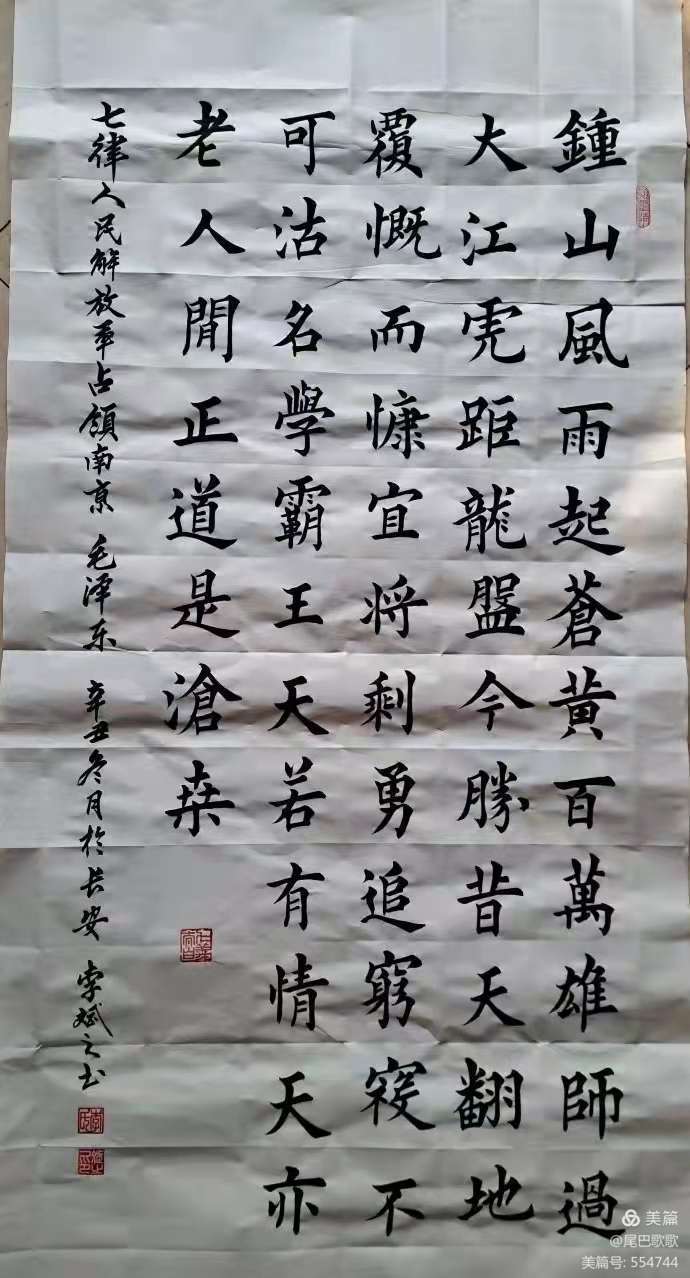 鍾山風雨起蒼黄百萬雄師過
大江虎距龍盤今勝昔天翻地
覆慨而慷宜将剩勇追窮寇不
可沽名學霸王天若有情天亦
老人閒正道是滄桒
七律人民解放军占領南京 毛泽东 辛丑冬月於长安 李斌之书
美篇
@尾巴歌歌
美篇号: 554744